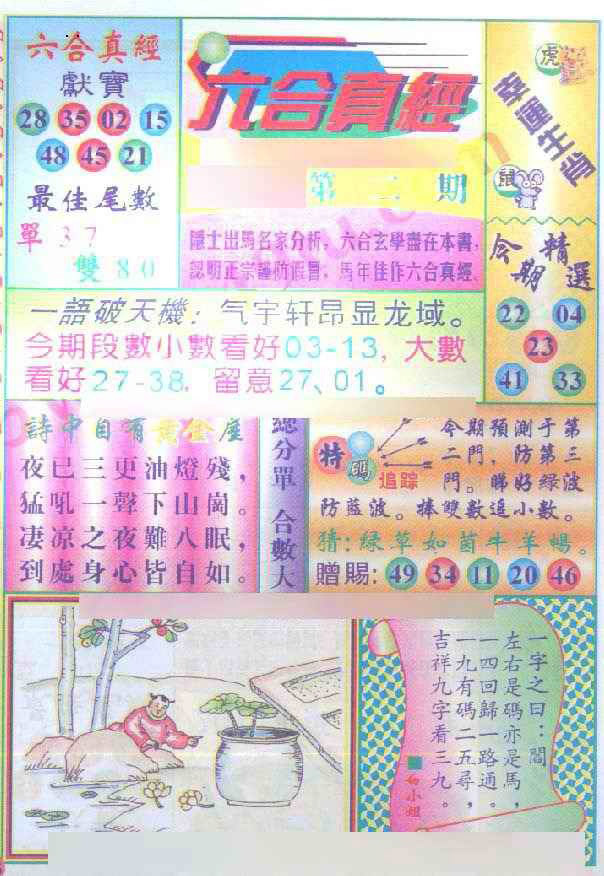 六合真經
獻寶
28 35 02 15
48 45 21
最佳尾數
單 37
雙 80
六合真經
第二期
隱士出馬名家分析，六合玄學盡在本書，
認明正宗謹防假冒，馬年佳作六合真經．
虎
幸運生肖
鼠
今期精選
22 04
23
41 33
一語破天機：气宇轩昂显龙域。
今期段數小數看好03-13，大數
看好27-38，留意27、01。
詩中自有黃金屋
夜已三更油燈殘，
猛吼一聲下山崗。
凄凉之夜難入眠，
到處身心皆自如。
總分單 合數大
特碼
追踪
今期預測于第
二門，防第三
門。睇好綠波
防藍波。捧雙數追小數。
猜：綠草如茵牛羊暢。
贈賜：49 34 11 20 46
一字之曰：閣
左右是碼亦是馬，
一四回歸一路通。
一九有碼二五尋，
吉祥九字看三九。